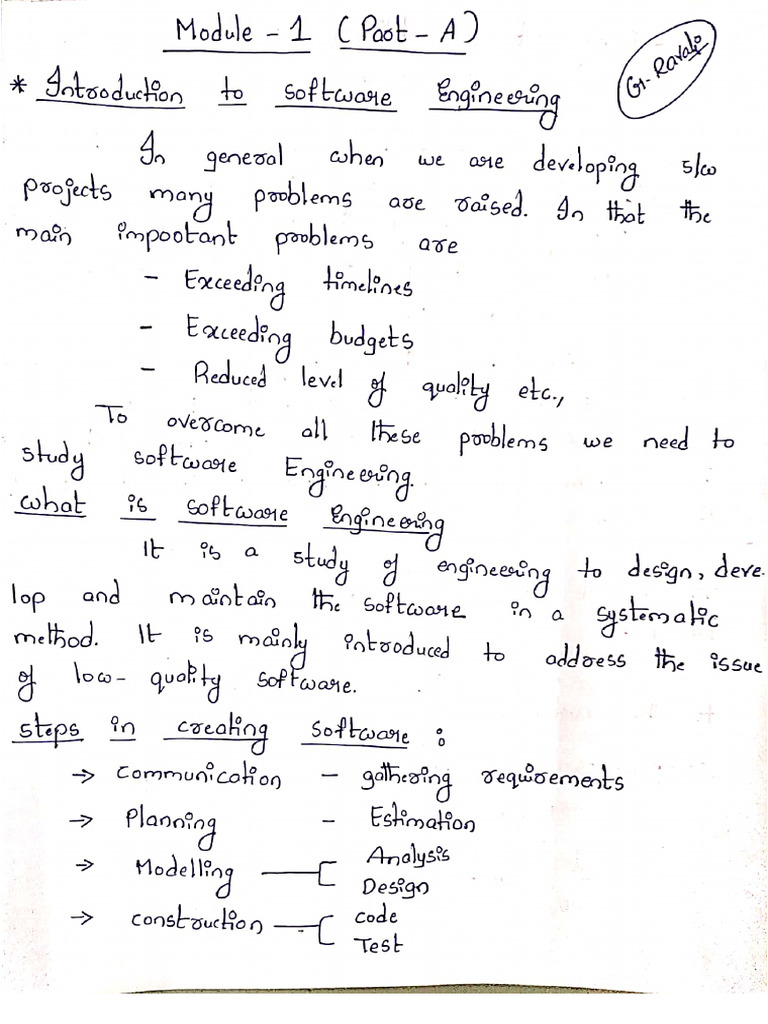 Module - 1 (Part - A)
G. Ravali
* Introduction to software Engineering
In general when we are developing s/w
projects many problems are raised. In that the
main important problems are
- Exceeding timelines
- Exceeding budgets
- Reduced level of quality etc.,
To overcome all these problems we need to
study software Engineering.
what is software Engineering
It is a study of engineering to design, deve-
lop and maintain the software in a systematic
method. It is mainly introduced to address the issue
of low-quality software.
steps in creating software :
→ communication - gathering requirements
→ Planning - Estimation
→ Modelling — [ Analysis
Design
→ construction — [ code
Test